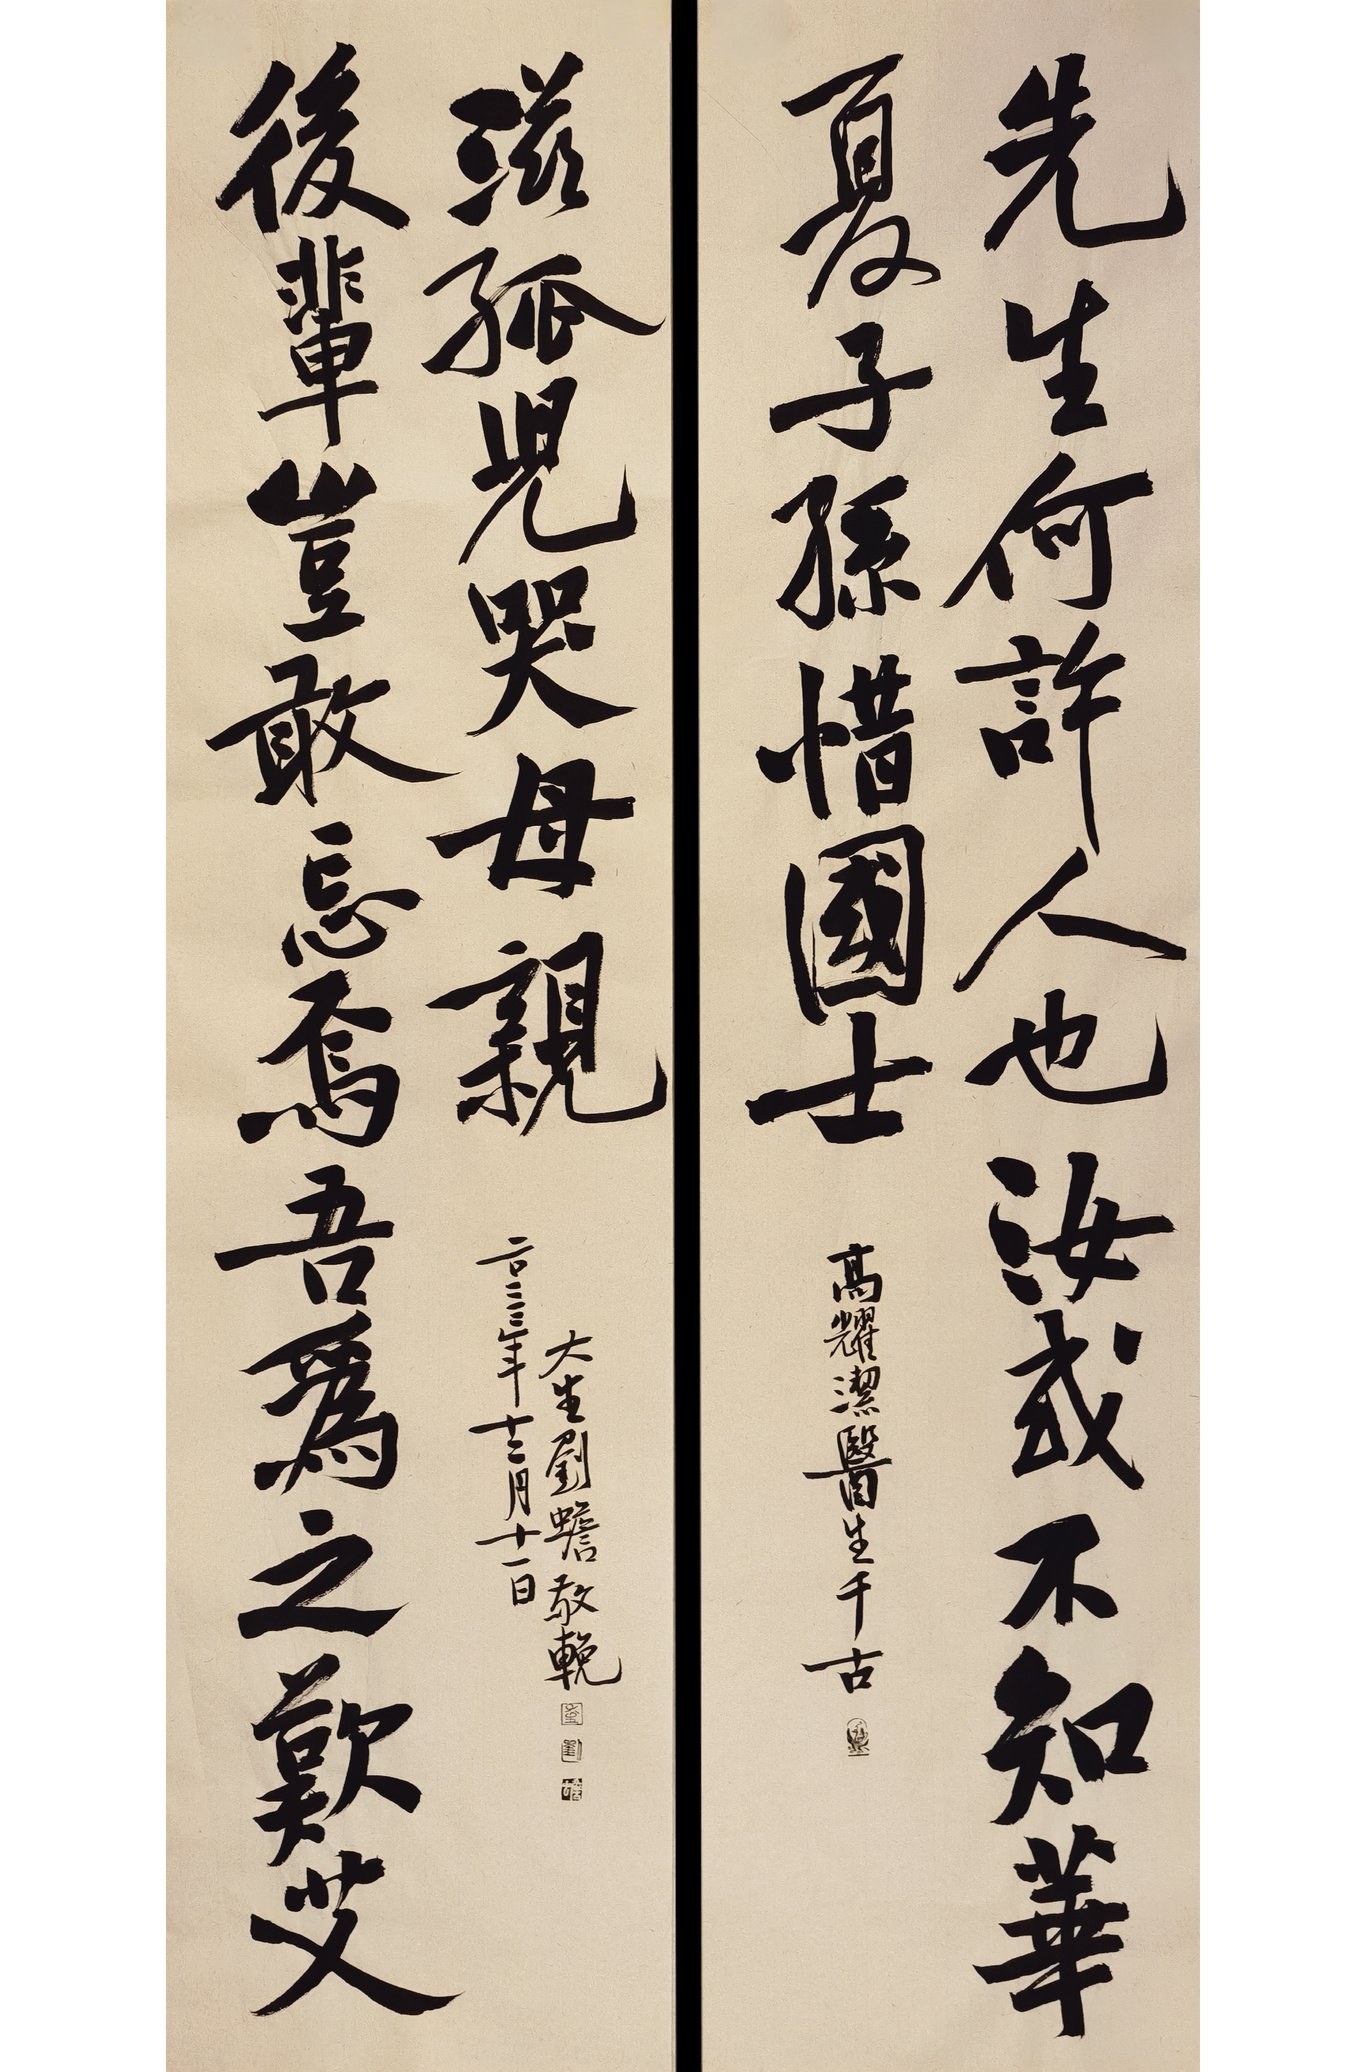 先生何許人也汝或不知華
夏子孫惜國士
高耀潔醫生千古
後輩豈敢忘焉吾為之歎艾
滋孤兒哭母親
大生劉蟾敬輓
二〇二三年十二月十一日